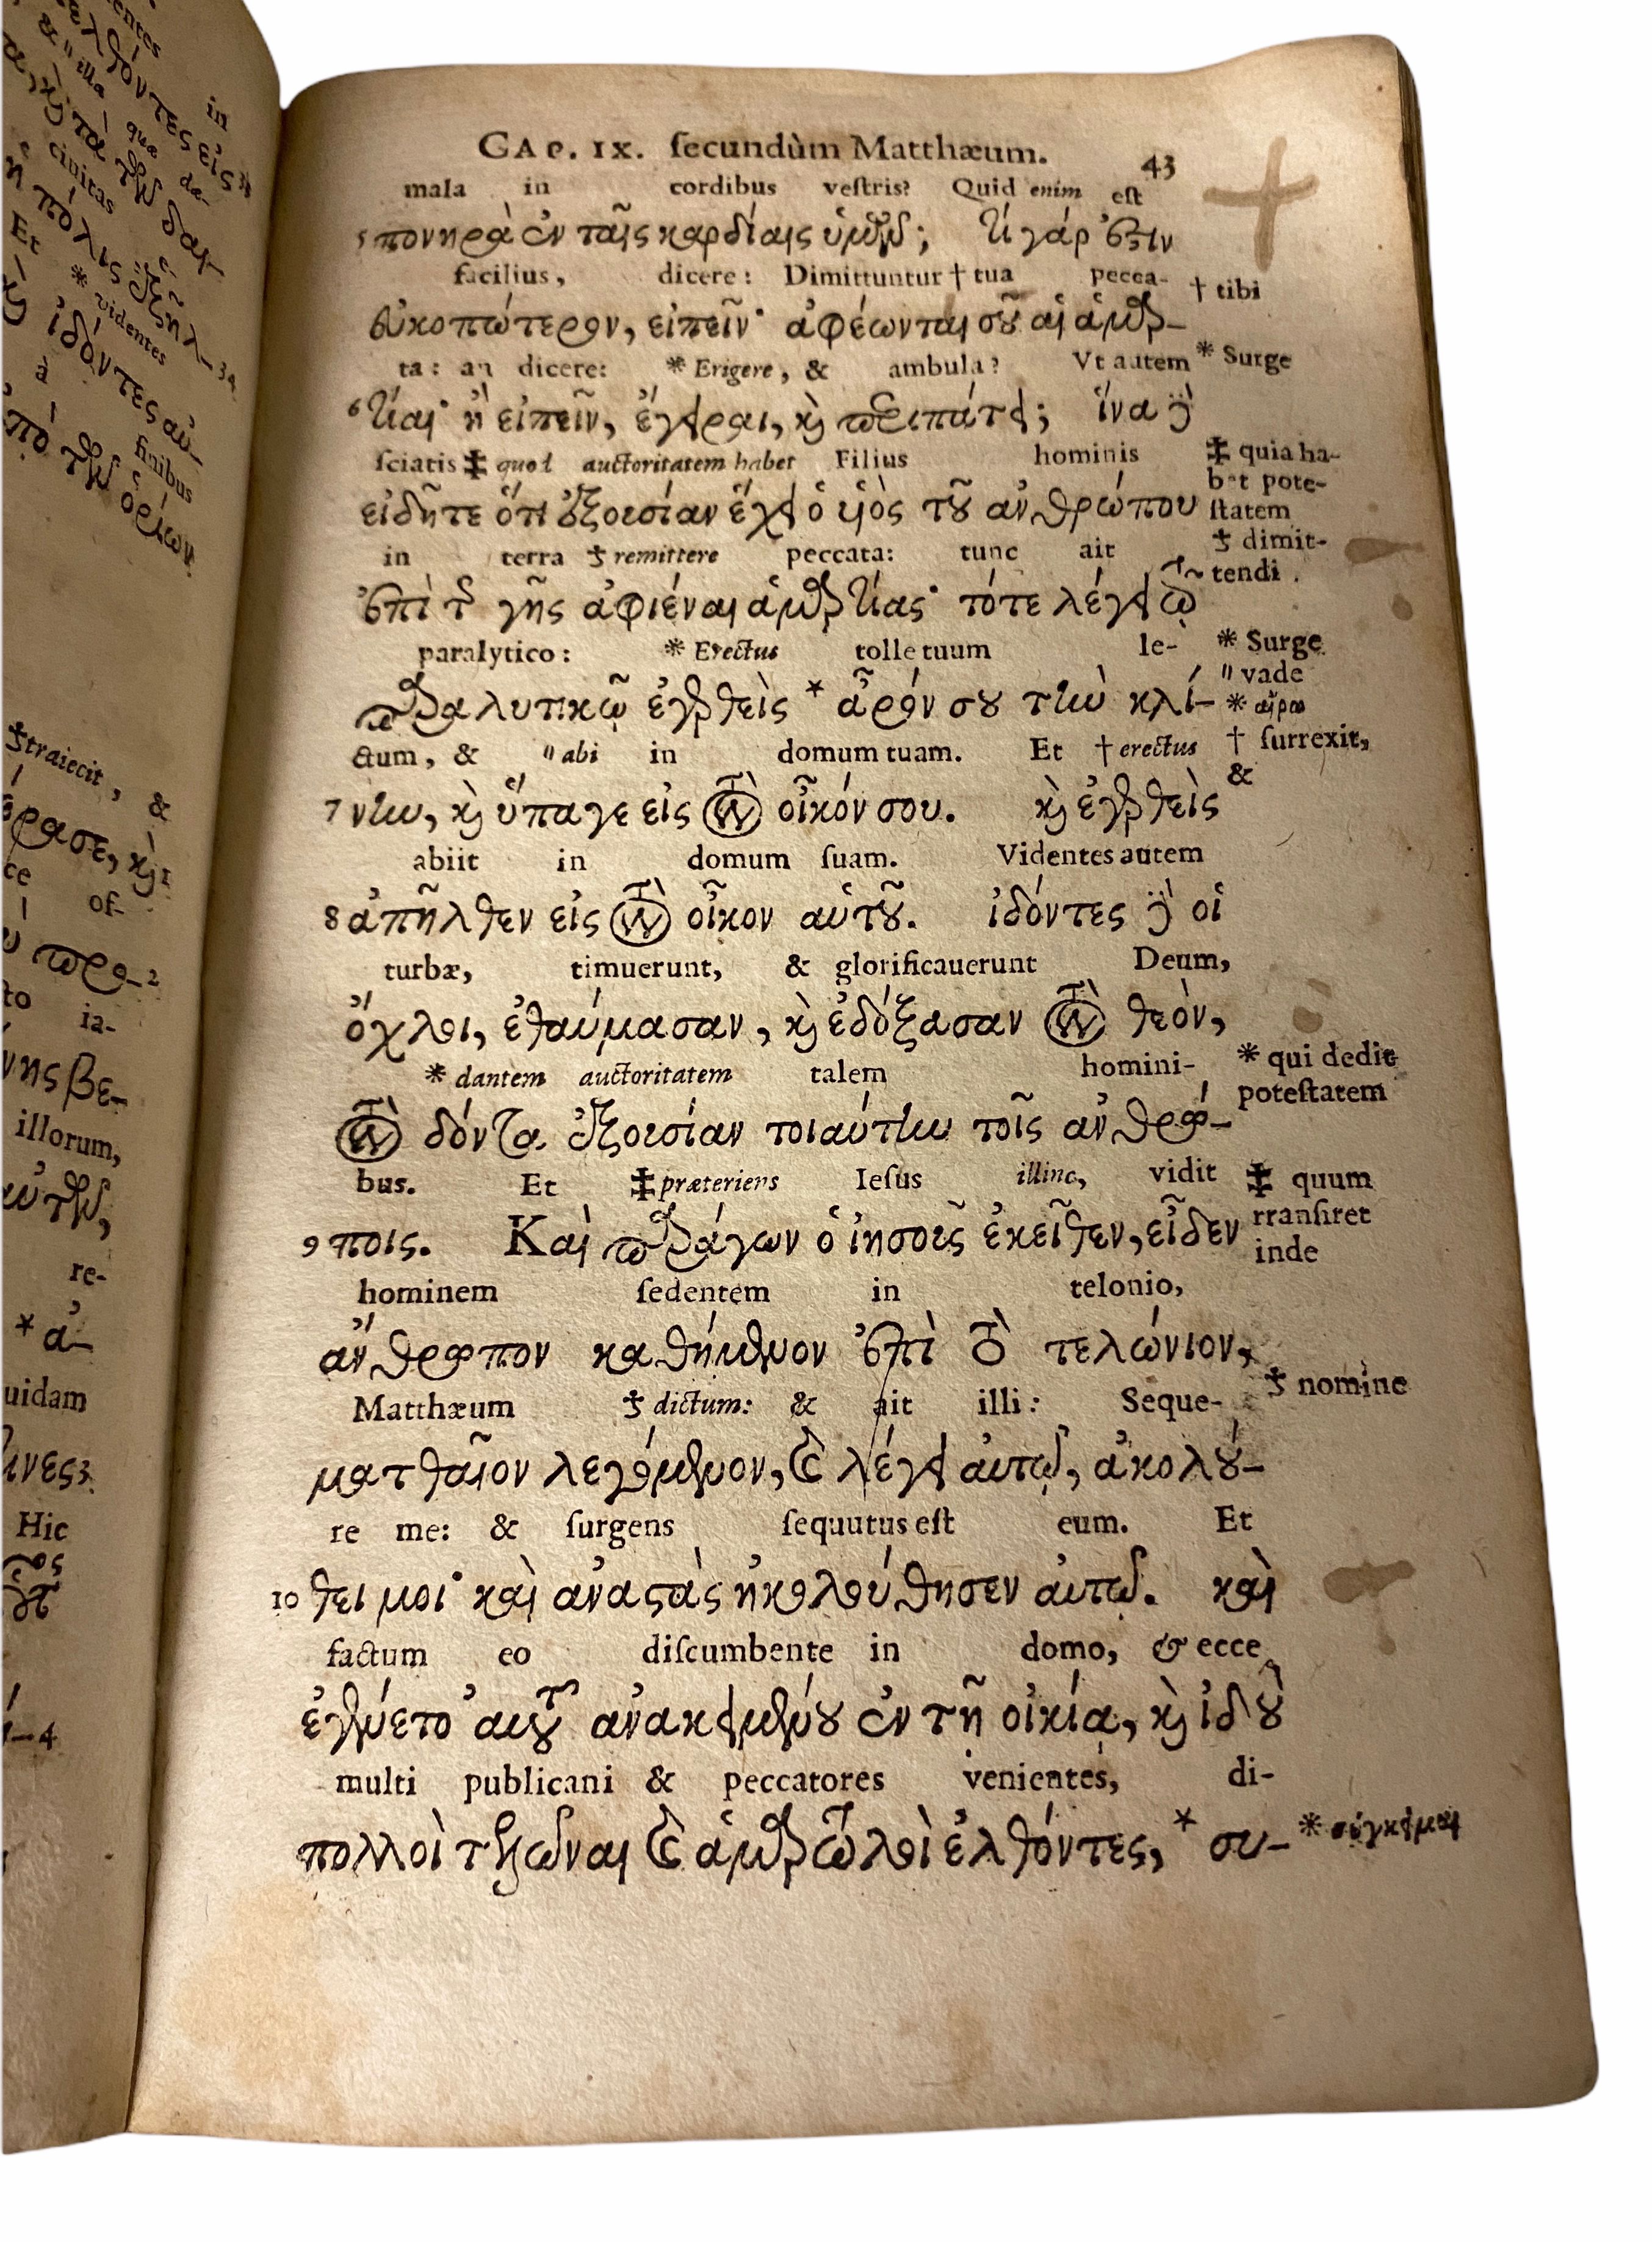 CAP. IX. ſecundùm Matthæum. 43
mala in cordibus veſtris? Quid enim eſt
5 πονηρὰ ἐν ταῖς καρδίαις ὑμῶν; τί γάρ ἐστιν
facilius, dicere: Dimittuntur † tua pecca- † tibi
εὐκοπώτερον, εἰπεῖν· ἀφέωνται σου αἱ ἁμαρ-
ta: an dicere: * Erigere, & ambula? Vt autem * Surge
6 τίαι· ἢ εἰπεῖν, ἔγειραι, καὶ περιπάτει; ἵνα δὲ
ſciatis ‡ quod auctoritatem habet Filius hominis ‡ quia ha-
bet pote-
εἰδῆτε ὅτι ἐξουσίαν ἔχει ὁ υἱὸς τοῦ ἀνθρώπου ſtatem
in terra ‡ remittere peccata: tunc ait ‡ dimit-
tendi.
ἐπὶ τῆς γῆς ἀφιέναι ἁμαρτίας· τότε λέγει τῷ
paralytico: * Erectus tolle tuum le- * Surge
" vade
παραλυτικῷ ἐγερθεὶς * ἆρόν σου τὴν κλί- * αἴρω
ctum, & " abi in domum tuam. Et † erectus † ſurrexit,
&
7 νην, καὶ ὕπαγε εἰς τὸν οἶκόν σου. καὶ ἐγερθεὶς
abiit in domum ſuam. Videntes autem
8 ἀπῆλθεν εἰς τὸν οἶκον αὐτοῦ. ἰδόντες δὲ οἱ
turbæ, timuerunt, & glorificauerunt Deum,
ὄχλοι, ἐθαύμασαν, καὶ ἐδόξασαν τὸν θεόν,
* dantem auctoritatem talem homini- * qui dedit
poteſtatem
τὸν δόντα ἐξουσίαν τοιαύτην τοῖς ἀνθρώ-
bus. Et ‡ præteriens Ieſus illinc, vidit ‡ quum
rranſiret
9 ποις. Καὶ παράγων ὁ ἰησοῦς ἐκεῖθεν, εἶδεν inde
hominem ſedentem in telonio,
ἄνθρωπον καθήμενον ἐπὶ τὸ τελώνιον,
Matthæum ‡ dictum: & ait illi: Seque- ‡ nomine
ματθαῖον λεγόμενον, καὶ λέγει αὐτῷ, ἀκολού-
re me: & ſurgens ſequutus eſt eum. Et
10 θει μοι· καὶ ἀναστὰς ἠκολούθησεν αὐτῷ. καὶ
factum eo diſcumbente in domo, & ecce
ἐγένετο αὐτοῦ ἀνακειμένου ἐν τῇ οἰκίᾳ, καὶ ἰδοὺ
multi publicani & peccatores venientes, di-
πολλοὶ τελῶναι καὶ ἁμαρτωλοὶ ἐλθόντες, * συ- * σύγκειμαι